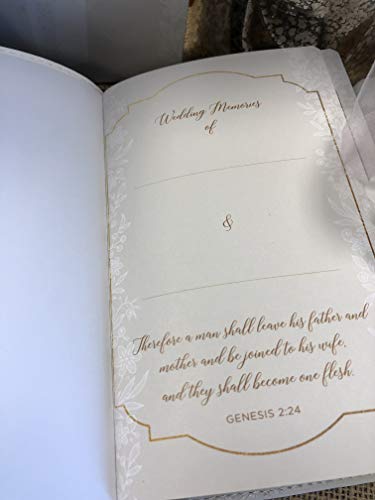 Wedding Memories
of
&
Therefore a man shall leave his father and
mother and be joined to his wife,
and they shall become one flesh.
GENESIS 2:24